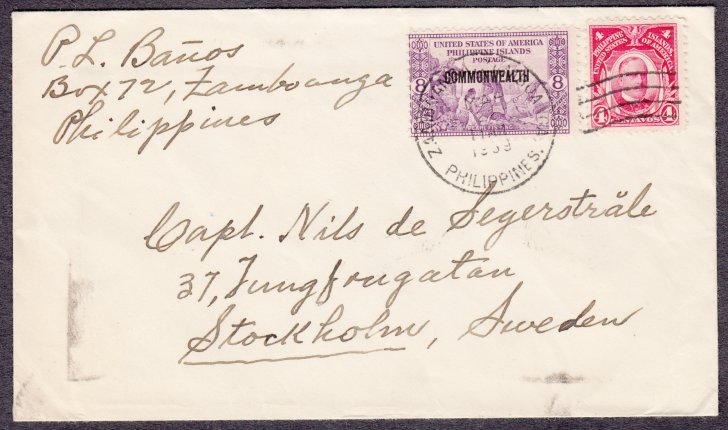 P. L. Baños
Box 72, Zamboanga
Philippines
UNITED STATES OF AMERICA
PHILIPPINE ISLANDS
POSTAGE
COMMONWEALTH
8 8
PHILIPPINE ISLANDS
UNITED STATES OF AMERICA
4 4
4 CENTAVOS 4
1939
PHILIPPINES.
Capt. Nils de Segerstråle
37, Jungfrugatan
Stockholm, Sweden